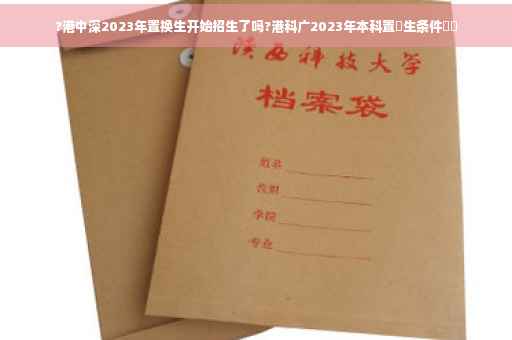 ?港中深2023年置换生开始招生了吗?港科广2023年本科置生条件
陕西科技大学
档案袋
姓名
教职
学院
专业